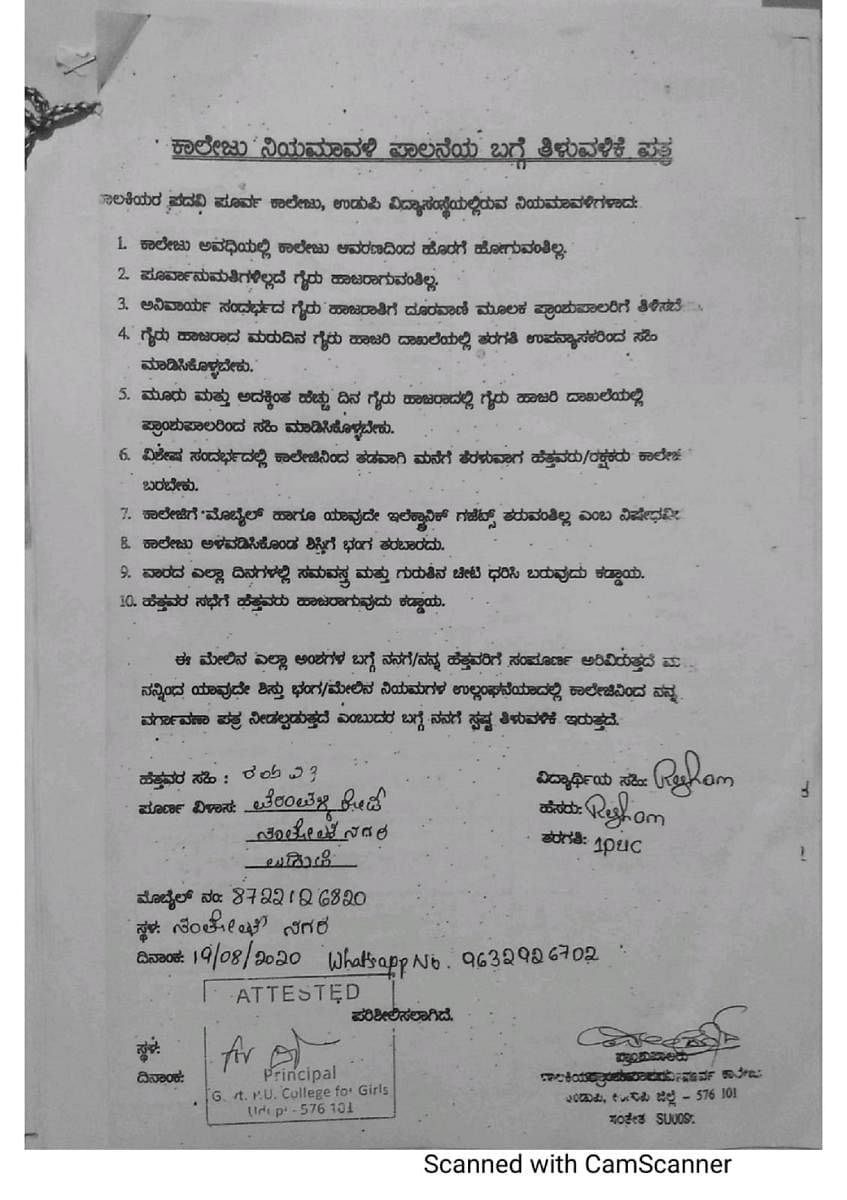 ಕಾಲೇಜು ನಿಯಮಾವಳಿ ಪಾಲನೆಯ ಬಗ್ಗೆ ತಿಳುವಳಿಕೆ ಪತ್ರ
ಾಲಕಿಯರ ಪದವಿ ಪೂರ್ವ ಕಾಲೇಜು, ಉಡುಪಿ ವಿದ್ಯಾಸಂಸ್ಥೆಯಲ್ಲಿರುವ ನಿಯಮಾವಳಿಗಳಾದ:
1. ಕಾಲೇಜು ಅವಧಿಯಲ್ಲಿ ಕಾಲೇಜು ಆವರಣದಿಂದ ಹೊರಗೆ ಹೋಗುವಂತಿಲ್ಲ.
2. ಪೂರ್ವಾನುಮತಿಗಳಿಲ್ಲದೆ ಗೈರು ಹಾಜರಾಗುವಂತಿಲ್ಲ.
3. ಅನಿವಾರ್ಯ ಸಂದರ್ಭದ ಗೈರು ಹಾಜರಾತಿಗೆ ದೂರವಾಣಿ ಮೂಲಕ ಪ್ರಾಂಶುಪಾಲರಿಗೆ ತಿಳಿಸಬೆ
4. ಗೈರು ಹಾಜರಾದ ಮರುದಿನ ಗೈರು ಹಾಜರಿ ದಾಖಲೆಯಲ್ಲಿ ತರಗತಿ ಉಪನ್ಯಾಸಕರಿಂದ ಸಹಿ
ಮಾಡಿಸಿಕೊಳ್ಳಬೇಕು.
5. ಮೂರು ಮತ್ತು ಅದಕ್ಕಿಂತ ಹೆಚ್ಚು ದಿನ ಗೈರು ಹಾಜರಾದಲ್ಲಿ ಗೈರು ಹಾಜರಿ ದಾಖಲೆಯಲ್ಲಿ
ಪ್ರಾಂಶುಪಾಲರಿಂದ ಸಹಿ ಮಾಡಿಸಿಕೊಳ್ಳಬೇಕು.
6. ವಿಶೇಷ ಸಂದರ್ಭದಲ್ಲಿ ಕಾಲೇಜಿನಿಂದ ತಡವಾಗಿ ಮನೆಗೆ ತೆರಳುವಾಗ ಹೆತ್ತವರು/ರಕ್ಷಕರು ಕಾಲೇಜಿ
ಬರಬೇಕು.
7. ಕಾಲೇಜಿಗೆ ಮೊಬೈಲ್ ಹಾಗೂ ಯಾವುದೇ ಇಲೆಕ್ಟ್ರಾನಿಕ್ ಗಜೆಟ್ಸ್ ತರುವಂತಿಲ್ಲ ಎಂಬ ನಿಷೇಧವೀ
8. ಕಾಲೇಜು ಅಳವಡಿಸಿಕೊಂಡ ಶಿಸ್ತಿಗೆ ಭಂಗ ತರಬಾರದು.
9. ವಾರದ ಎಲ್ಲಾ ದಿನಗಳಲ್ಲಿ ಸಮವಸ್ತ್ರ ಮತ್ತು ಗುರುತಿನ ಚೀಟಿ ಧರಿಸಿ ಬರುವುದು ಕಡ್ಡಾಯ.
10. ಹೆತ್ತವರ ಸಭೆಗೆ ಹೆತ್ತವರು ಹಾಜರಾಗುವುದು ಕಡ್ಡಾಯ.
ಈ ಮೇಲಿನ ಎಲ್ಲಾ ಅಂಶಗಳ ಬಗ್ಗೆ ನನಗೆ/ನನ್ನ ಹೆತ್ತವರಿಗೆ ಸಂಪೂರ್ಣ ಅರಿವಿರುತ್ತದೆ ಮ
ನನ್ನಿಂದ ಯಾವುದೇ ಶಿಸ್ತು ಭಂಗ/ಮೇಲಿನ ನಿಯಮಗಳ ಉಲ್ಲಂಘನೆಯಾದಲ್ಲಿ ಕಾಲೇಜಿನಿಂದ ನನ್ನ
ವರ್ಗಾವಣಾ ಪತ್ರ ನೀಡಲ್ಪಡುತ್ತದೆ ಎಂಬುದರ ಬಗ್ಗೆ ನನಗೆ ಸ್ಪಷ್ಟ ತಿಳುವಳಿಕೆ ಇರುತ್ತದೆ.
ಹೆತ್ತವರ ಸಹಿ :
ವಿದ್ಯಾರ್ಥಿಯ ಸಹಿ: Resham
ಪೂರ್ಣ ವಿಳಾಸ:
ಹೆಸರು: Resham
ನಗರ
ತರಗತಿ: 1PUC
ಉಡುಪಿ
ಮೊಬೈಲ್ ನಂ: 8722126820
ಸ್ಥಳ: ನಗರ
ದಿನಾಂಕ: 19/08/2020 Whatsapp No. 9632926702
ATTESTED
ಪರಿಶೀಲಿಸಲಾಗಿದೆ.
ಸ್ಥಳ:
ಪ್ರಾಂಶುಪಾಲರು
ದಿನಾಂಕ:
Principal
ಕಾಲೇಜು
Govt. P.U. College for Girls
ಉಡುಪಿ, ಉಡುಪಿ ಜಿಲ್ಲೆ - 576 101
Udupi - 576 101
ಸಂಕೇತ SU009
Scanned with CamScanner